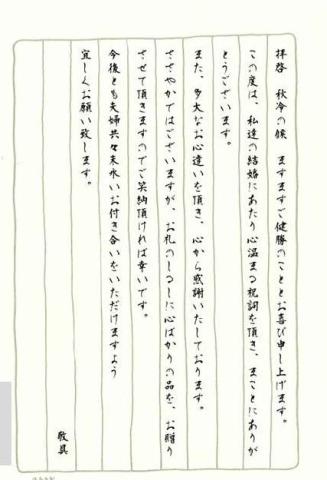 拝啓　秋冷の候　ますますご健勝のこととお喜び申し上げます。
この度は、私達の結婚にあたり心温まる祝詞を頂き、まことにありが
とうございます。
また、多大なお心遣いを頂き、心から感謝いたしております。
ささやかではございますが、お礼のしるしに心ばかりの品を、お贈り
させて頂きますのでご笑納頂ければ幸いです。
今後とも夫婦共々末永いお付き合いをいただけますよう
宜しくお願い致します。
敬具